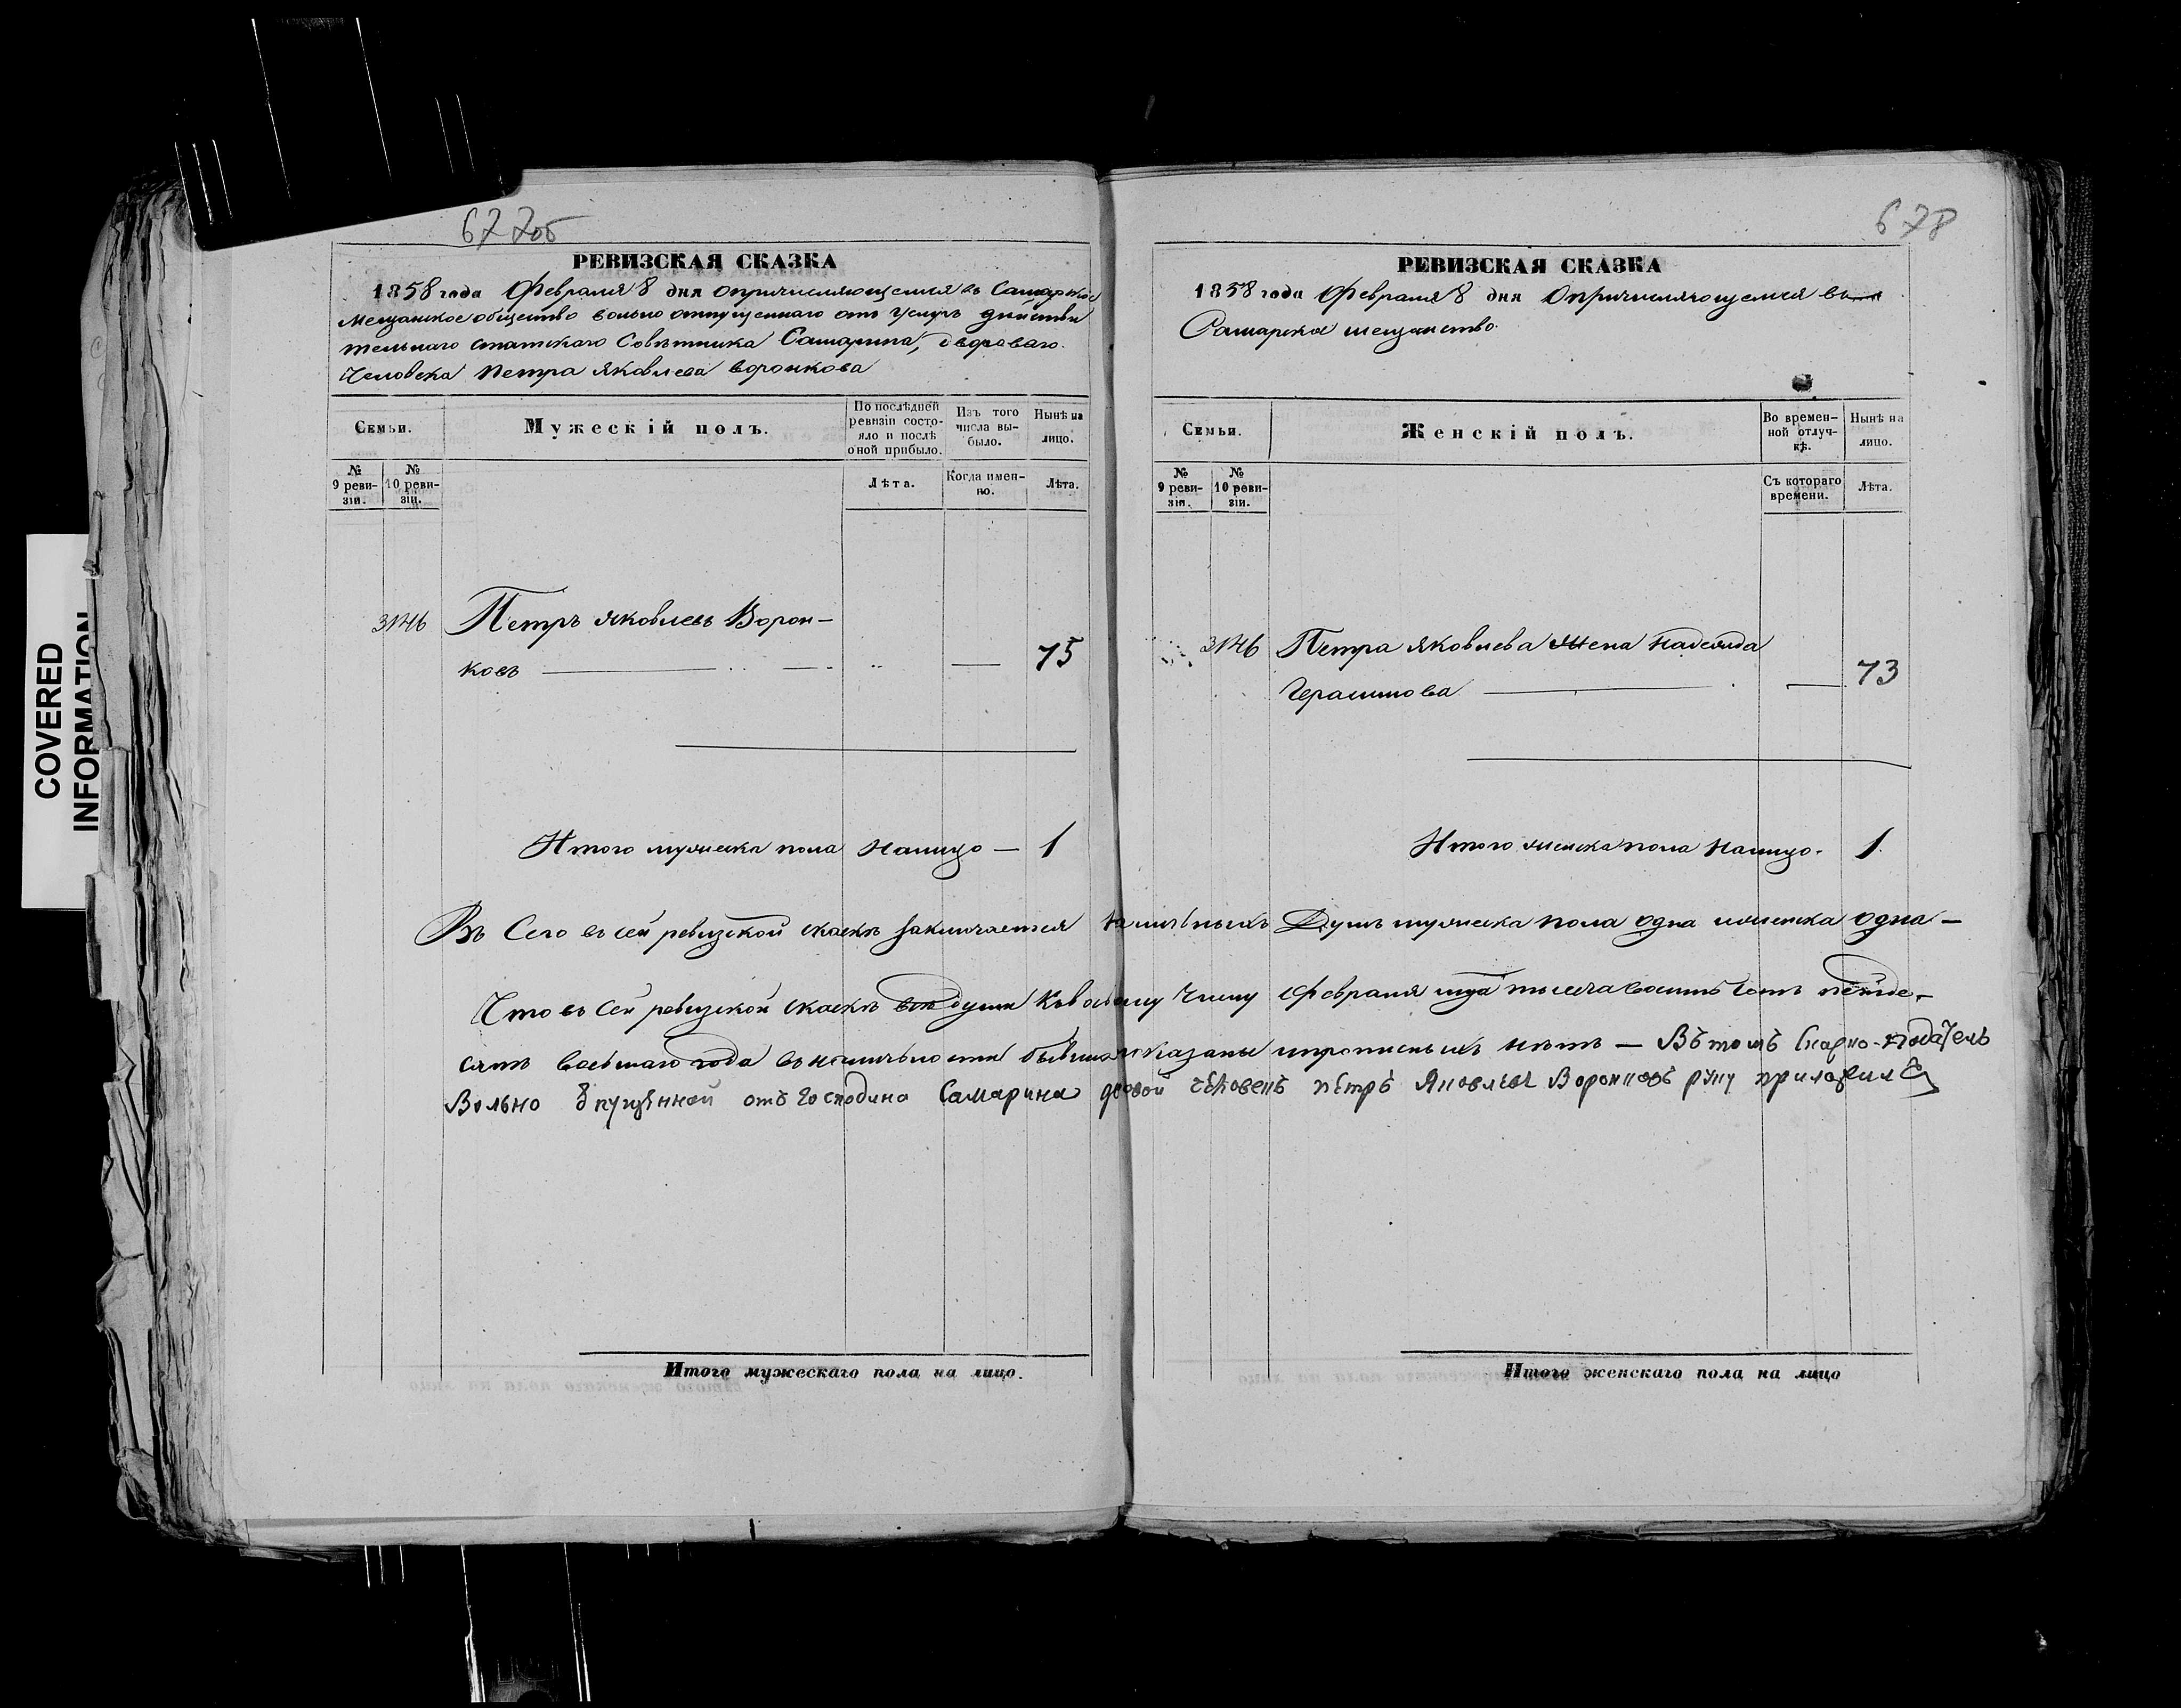 677об
РЕВИЗСКАЯ СКАЗКА
1858 года Февраля 8 дня опричисляющемся въ Самарское
Мещанское общество вольно отпущеннаго отъ Услугъ действи
тельнаго статскаго Советника Самарина, двороваго
Человека Петра Яковлева Воронкова
Семьи.
Мужескій полъ.
По послѣдней ревизіи состояло и послѣ оной прибыло.
Изъ того числа выбыло.
Нынѣ на лицо.
№ 9 ревизіи.
№ 10 ревизіи.
Лѣта.
Когда именно.
Лѣта.
3146 Петръ Яковлевъ Ворон-
ковъ 75
Итого мужеска пола налицо — 1
Итого мужескаго пола на лицо.
678
РЕВИЗСКАЯ СКАЗКА
1858 года Февраля 8 дня Опричисляющемся въ
Самарское мещанство
Семьи.
Женскій полъ.
Во временной отлучкѣ.
Нынѣ на лицо.
№ 9 ревизіи.
№ 10 ревизіи.
Съ котораго времени.
Лѣта.
3146 Петра Яковлева Жена Надежда
Герасимова 73
Итого женска пола налицо. 1
Въ Сего въ сей ревизской скаскѣ заключается наличныхъ Душъ мужеска пола одна и женска одна —
Что въ Сей ревизской скаскѣ всѣ души Къ восьмому Числу Февраля тысяча восимъ Сотъ петьде-
сятъ восьмаго года въ наличьности бывшия показаны и прописныхъ нѣтъ — Въ томъ Скаско-податель
Вольно отпущенной отъ Господина Самарина дворовой человекъ Пётръ Яковлевъ Воронковъ руку приложилъ
Итого женскаго пола на лицо
COVERED
INFORMATION